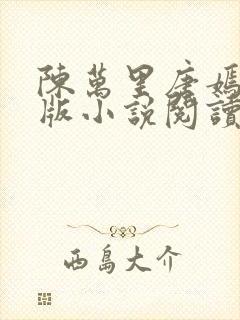 陳萬里唐嫣
版小說閱讀
西島大介